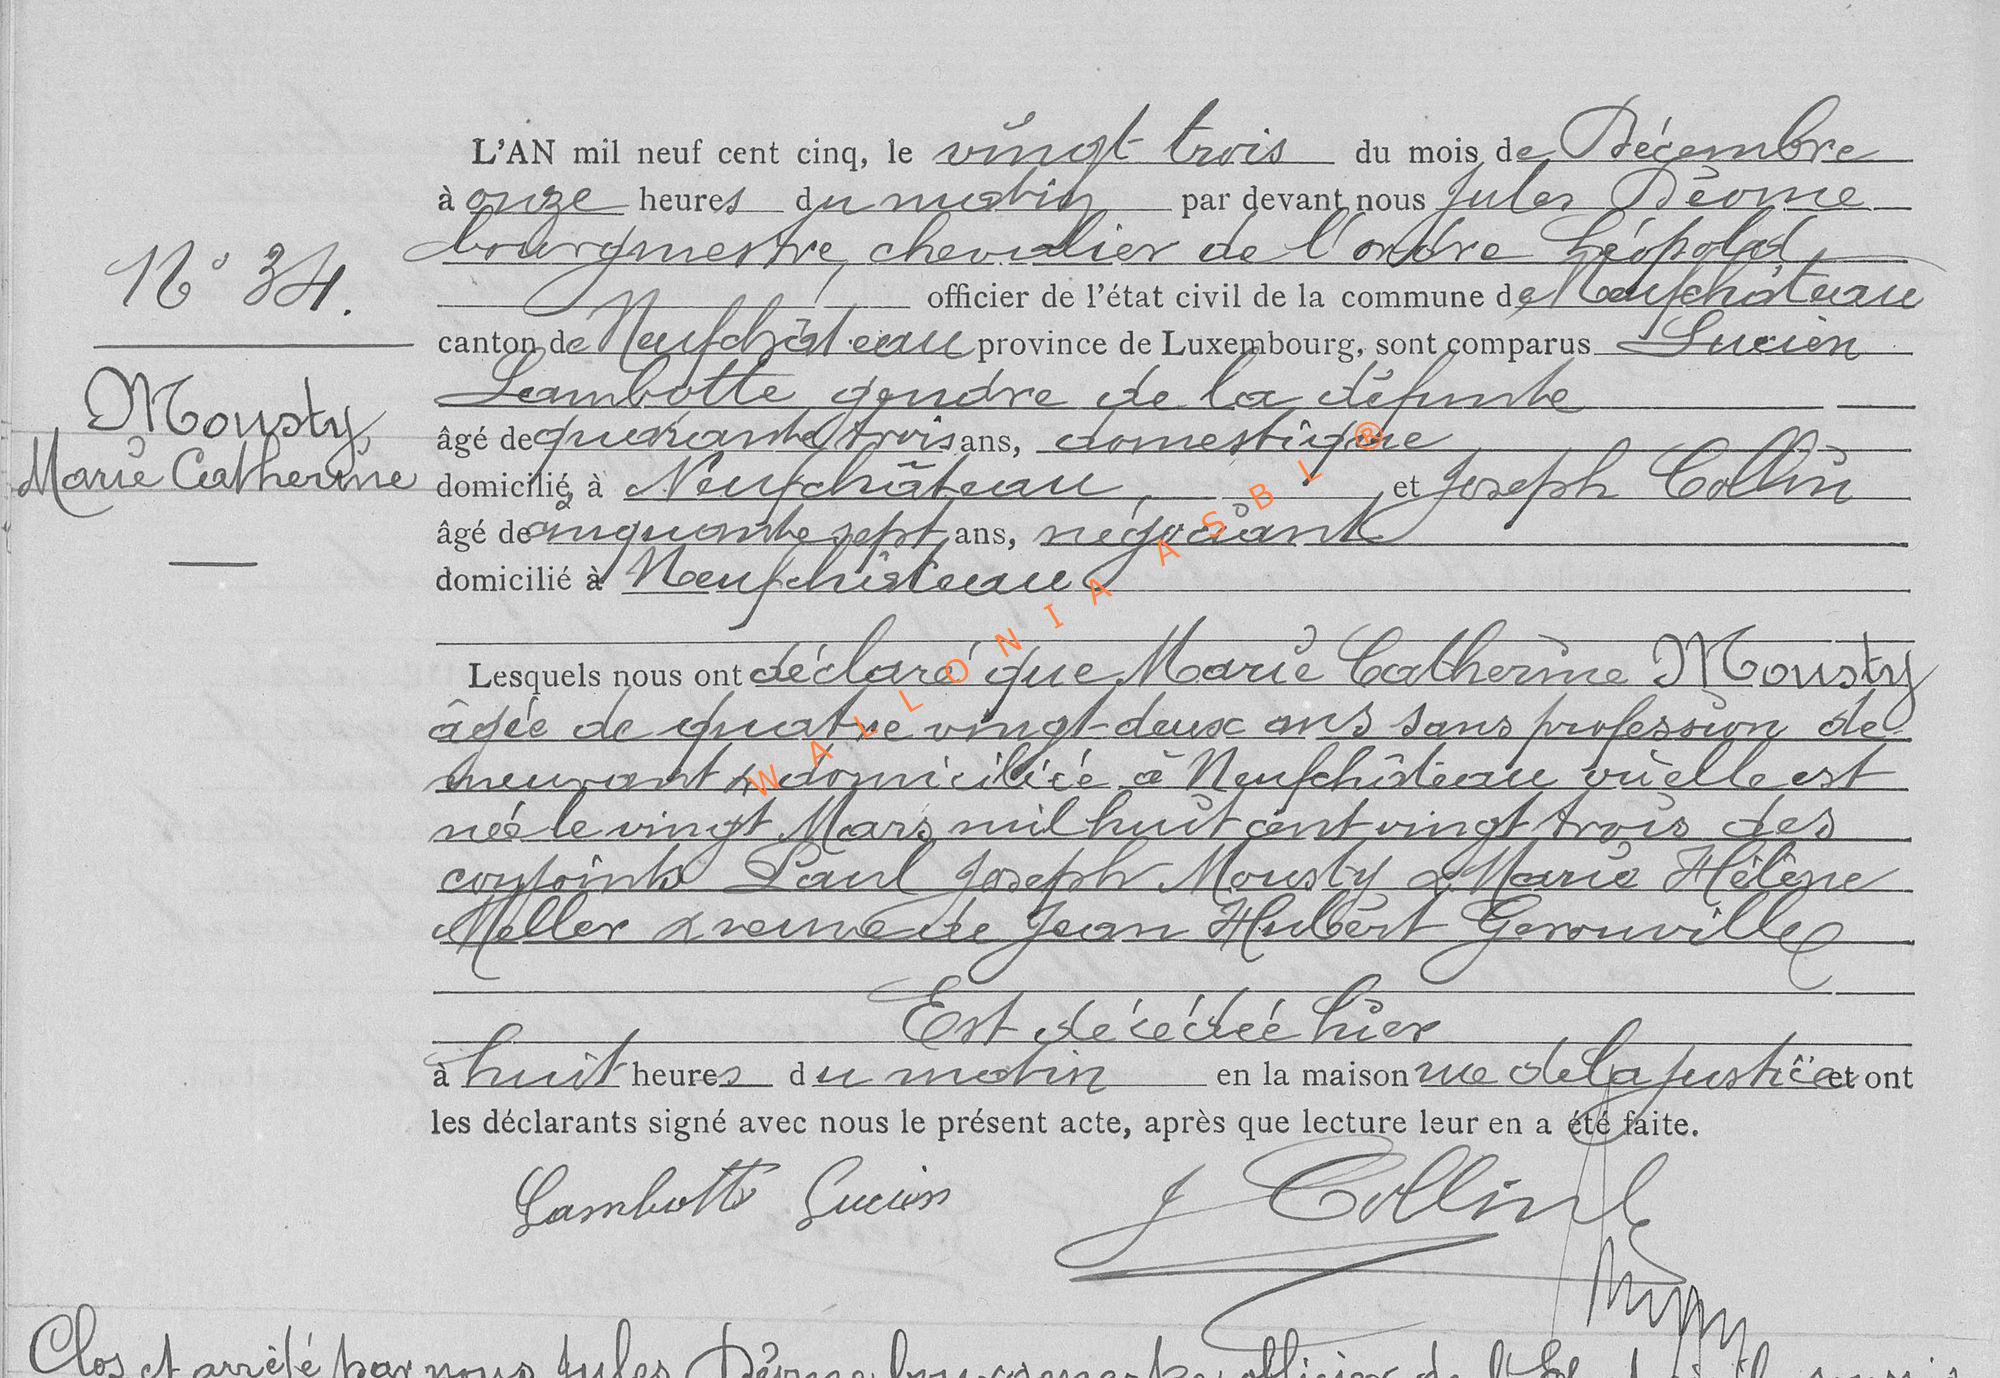 L'AN mil neuf cent cinq, le vingt trois du mois de Décembre
à onze heures du matin par devant nous Jules Déome
bourgmestre, chevalier de l'ordre Léopold,
N° 34.
officier de l'état civil de la commune de Neufchâteau
canton de Neufchâteau province de Luxembourg, sont comparus Lucien
Lambotte gendre de la défunte
Mousty
âgé de quarante trois ans, domestique
Marie Catherine
domicilié à Neufchâteau, et Joseph Collin
âgé de cinquante sept ans, négociant
domicilié à Neufchâteau.
Lesquels nous ont déclaré que Marie Catherine Mousty
âgée de quatre vingt-deux ans sans profession de
meurant & domiciliée à Neufchâteau où elle est
née le vingt Mars mil huit cent vingt trois des
conjoints Paul Joseph Mousty & Marie Hélène
Meller & veuve de Jean Hubert Gerouville
Est décédée hier
à huit heures du matin en la maison rue de la justice et ont
les déclarants signé avec nous le présent acte, après que lecture leur en a été faite.
Lambotte Lucien J Collin
Clos et arrêté par nous Jules Déome bourgmestre officier de l'Etat
WALLONIA ASBL ®